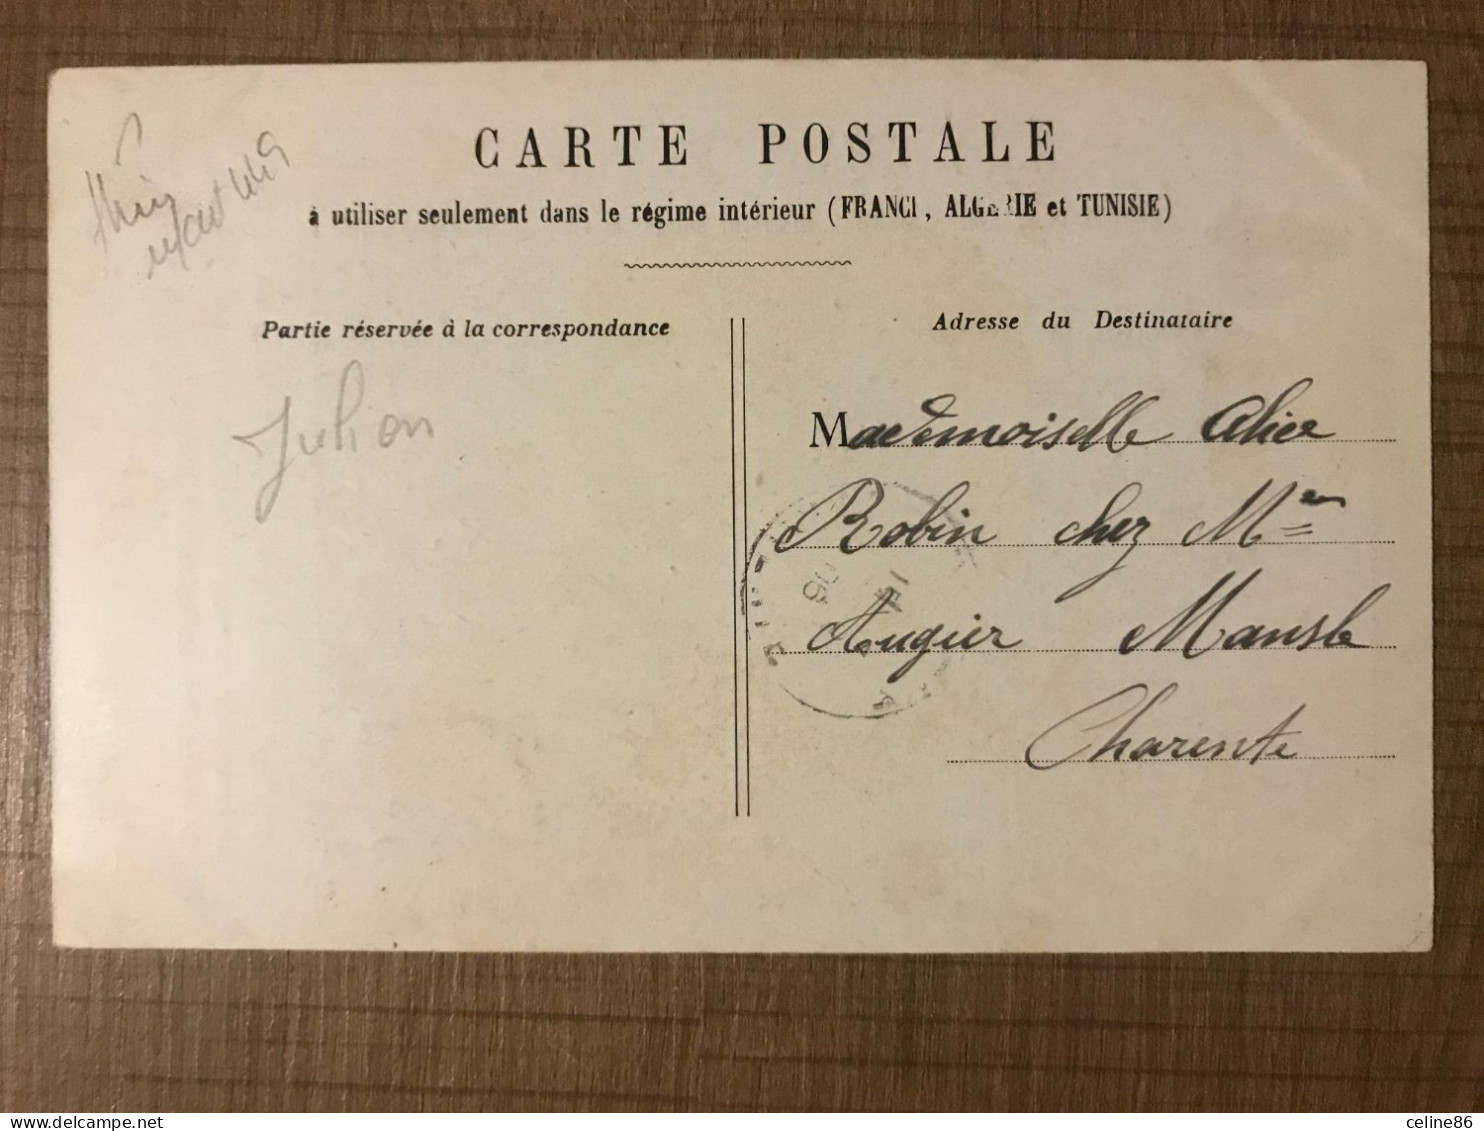 CARTE POSTALE
à utiliser seulement dans le régime intérieur (FRANCE, ALGERIE et TUNISIE)
Partie réservée à la correspondance
Adresse du Destinataire
Mademoiselle Alice
Robin chez Mme
Augier Mansle
Charente
delcampe.net
celine86